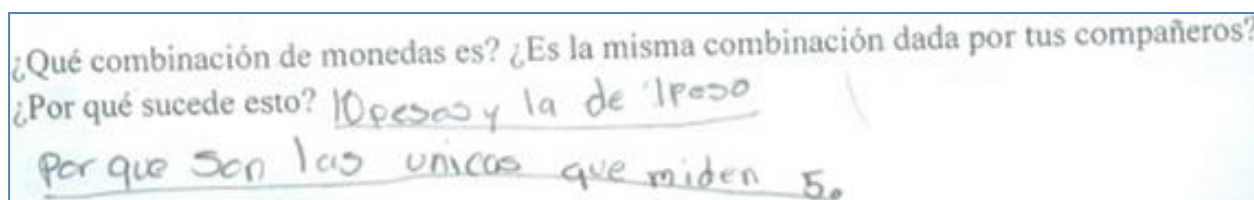 ¿Qué combinación de monedas es? ¿Es la misma combinación dada por tus compañeros?
¿Por qué sucede esto? 10 pesos y la de 1 peso
Por que son las unicas que miden 5.